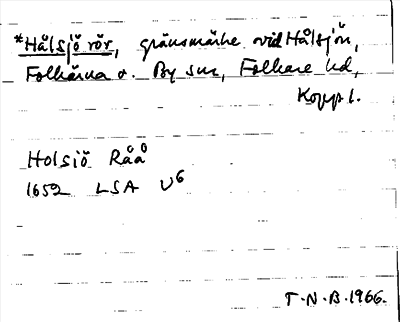 *Hålsjö rör, gränsmärke vid Hålsjön,
Folkärna o. By snr, Folkare hd,
Kopp l.
Holsiö Råå
1652 LSA U6
T.N.B. 1966.